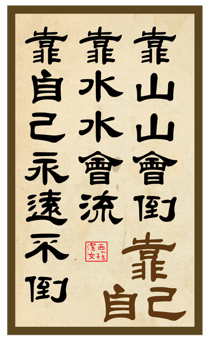 靠山山會倒
靠水水會流
靠自己永遠不倒
靠自己